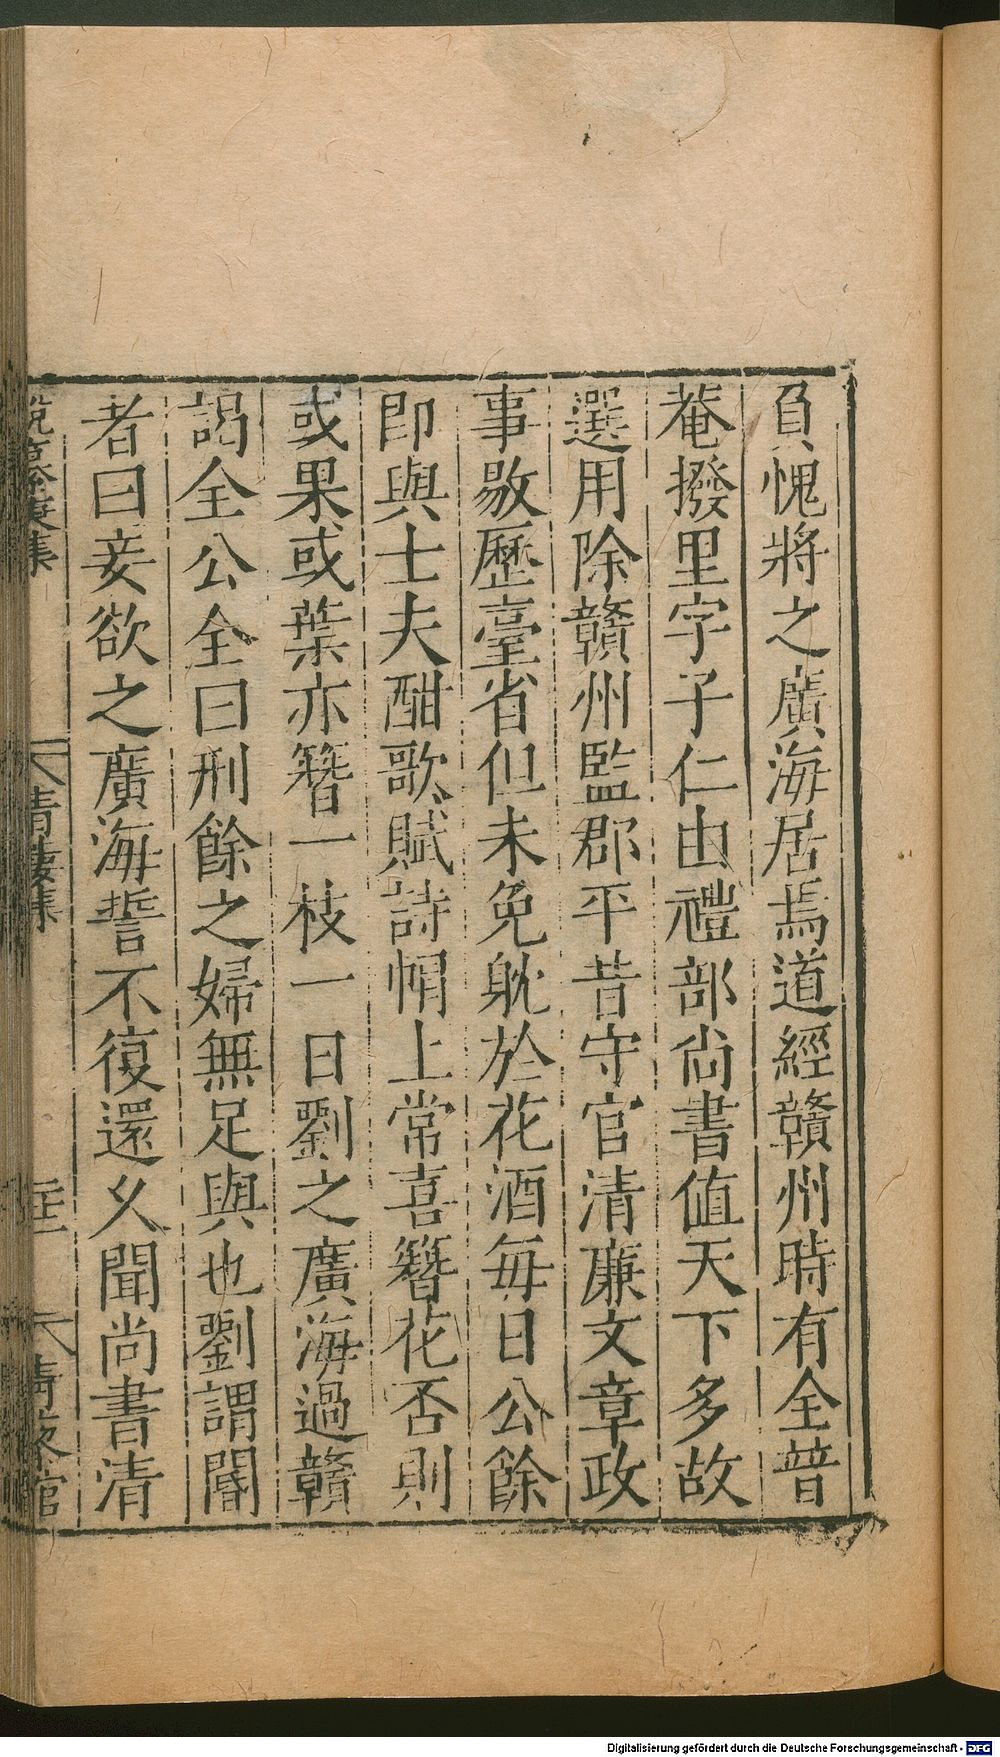 負愧將之廣海居焉道經贛州時有全普
菴撥里字子仁由禮部尚書值天下多故
選用除贛州監郡平昔守官清廉文章政
事敭歷臺省但未免躭於花酒每日公餘
即與士夫酣歌賦詩帽上常喜簪花否則
或果或葉亦簪一枝一日劉之廣海過贛
謁全公全曰刑餘之婦無足與也劉謂閽
者曰妾欲之廣海誓不復還乆聞尚書清
青樓集
Digitalisierung gefördert durch die Deutsche Forschungsgemeinschaft - DFG